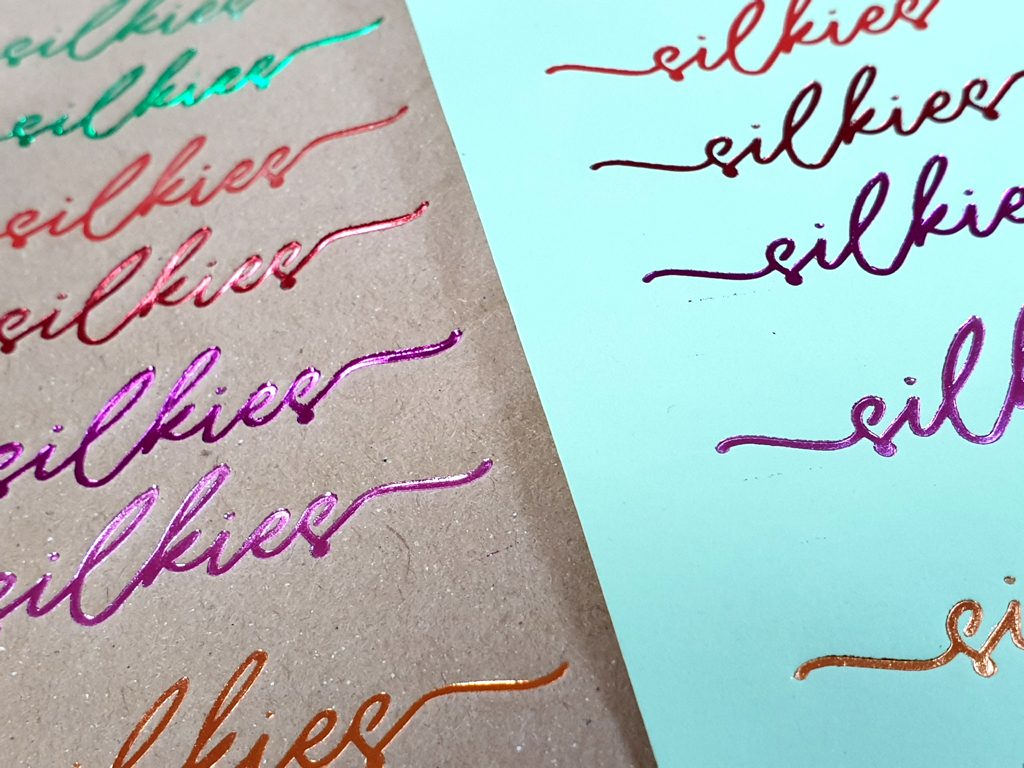 silkies
silkies
silkies
silkies
silkies
silkies
silkies
silkies
silkies
silkies
silk
si